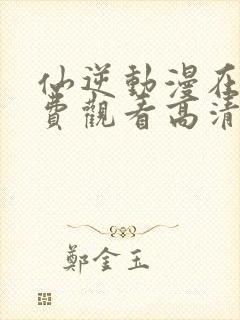 仙逆動漫在
費觀看高清
鄭金玉